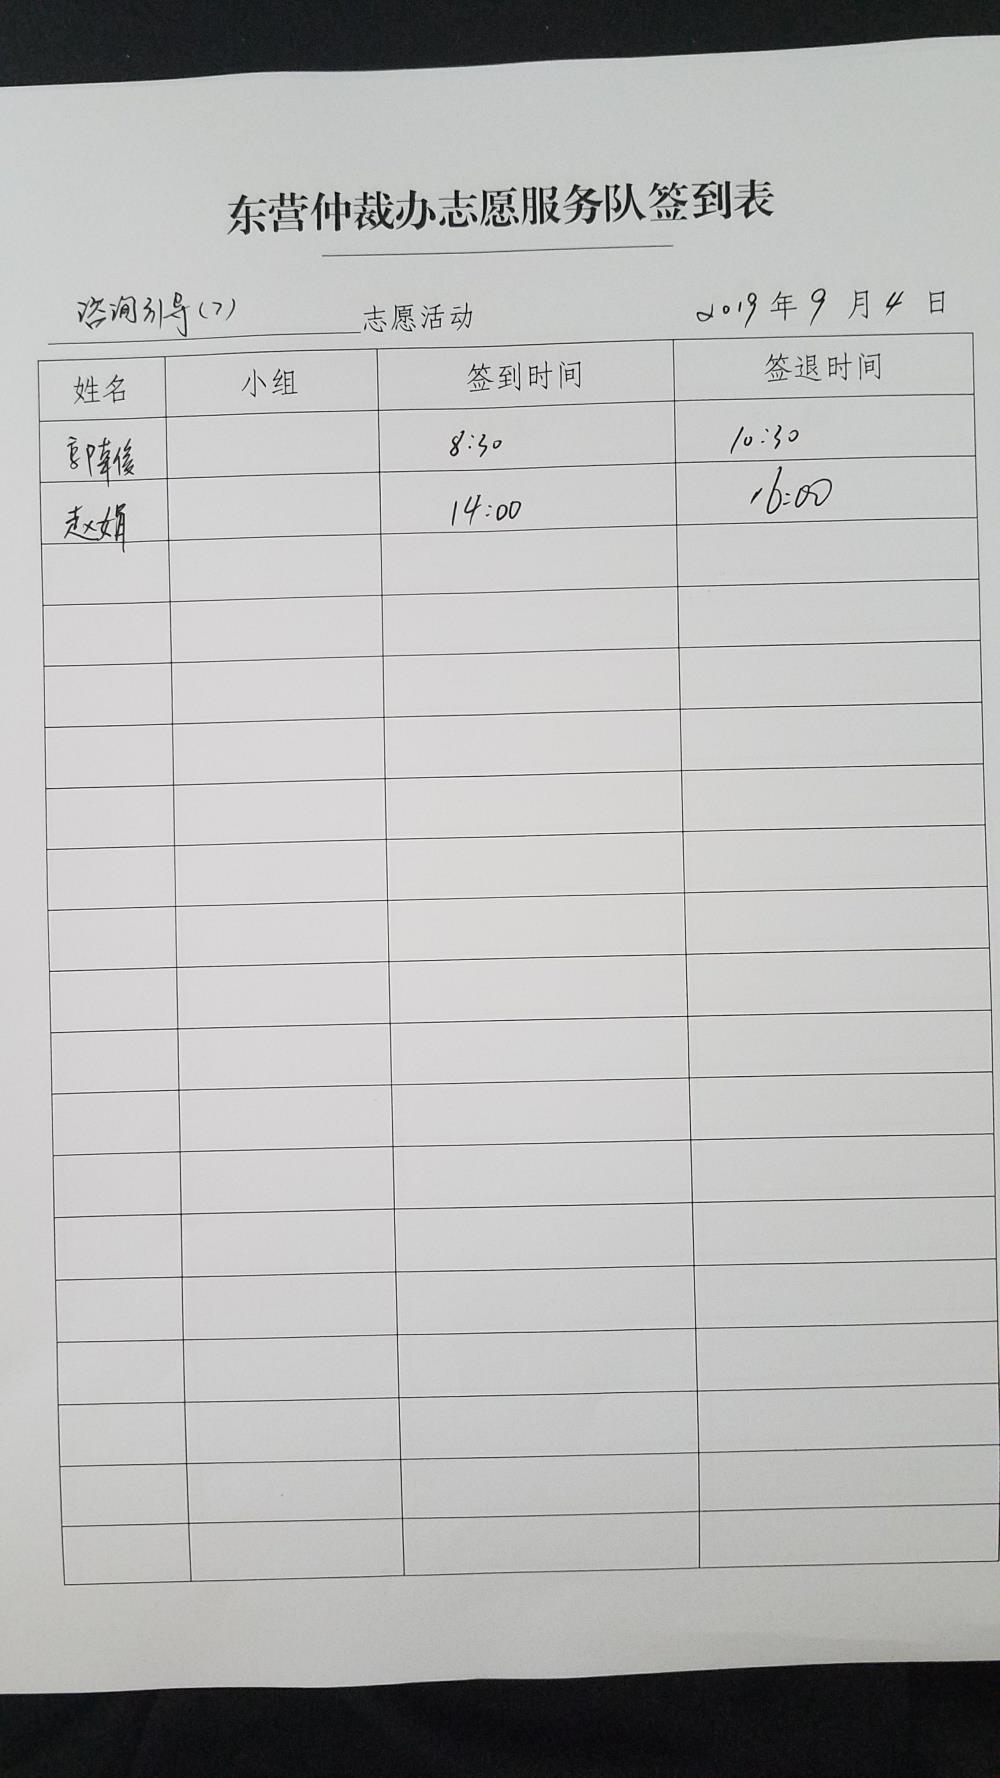 东营仲裁办志愿服务队签到表
咨询引导(7) 志愿活动 2019年9月4日
姓名 小组 签到时间 签退时间
8:30 10:30
赵娟 14:00 16:00